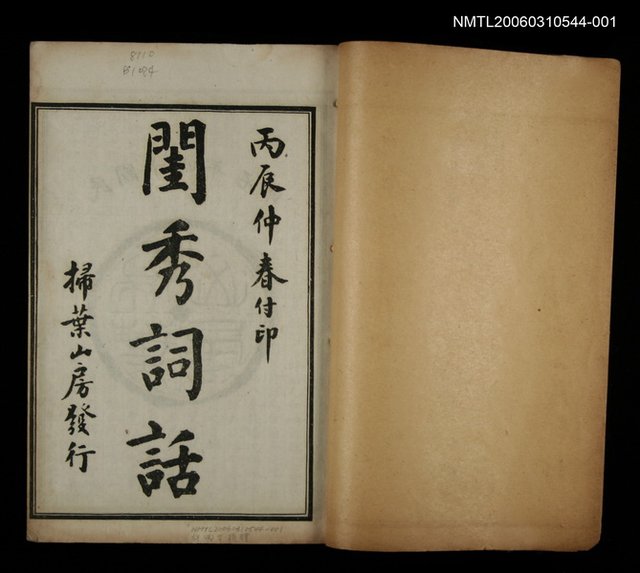 NMTL20060310544-001
8110
丙辰仲春付印
閨秀詞話
掃葉山房發行
NMTL20060310544-001